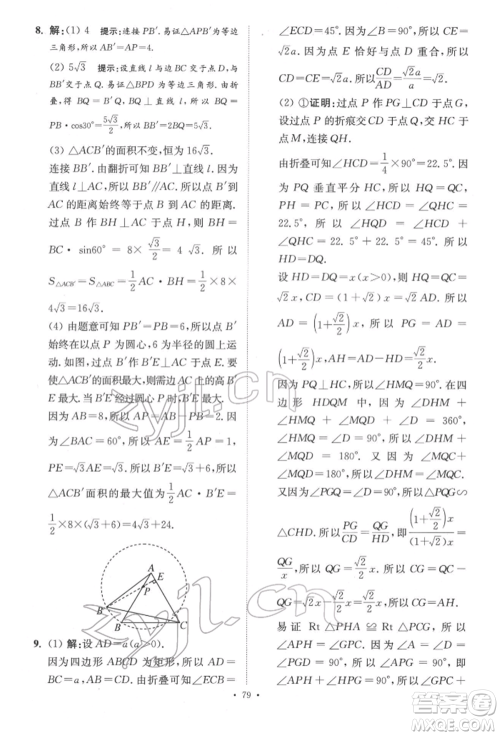 8. 解:(1) 4 提示:连接 PB′. 易证△APB′为等边
三角形,所以 AB′=AP=4.
(2) 5√3 提示:设直线 l 与 AB 交于点 D,与
BB′交于点 Q. 易得△BPD 为等边三角形. 由折
叠,得 BQ = B′Q, BQ ⊥ 直线 l,所以 BQ =
PB·cos30°=5√3/2,所以 BB′=5√3.
(3) △ACB′的面积不变,恒为16√3.
连接 BB′. 由翻折可知 BB′⊥直线 l. 因为
l⊥AC,所以 BB′∥AC. 所以点 B′到 AC 所在直
线的距离始终等于点 B 到 AC 的距离,为定值.
过点 B 作 BH ⊥ AC 于点 H,所以 BH =
BC·sin60° = 8×√3/2 = 4√3. 所以
S△ACB′ = S△ABC = 1/2 AC·BH = 1/2×8×
4√3=16√3.
(4) 由题意可知 PB′=PB=6,所以点 B′的运动
轨迹为以点 P 为圆心,6 为半径的圆的一部分.
如图,过点 B′作 B′E⊥AC 于点 E. 要使△ACB′
的面积最大,则 B′E 最大,即当 B′E 过圆心 P
时,B′E 最大. 因为 △ABC 是等边三角形,
AB=8,所以∠BAC=60°,所以 AE=1/2AP=1,
PE=√3. 因为 PB′=PB=6,所以 B′E=√3+6.
所以△ACB′面积的最大值为 1/2AC·B′E=
1/2×8×(√3+6)=4√3+24.
A
E
P
B
C
B′
9. (1) 解:设 AD=a(a>0).
因为四边形 ABCD 为矩形,所以∠ADC =
∠ECD = 90°. 由折叠可知∠ECB =
1/2∠BCD=45°,所以CD/CE=√2/2,所以 CE=√2a.
因为点 E 恰好与点 D 重合,所以 CD =
CE=√2a,所以CD/AD=√2a/a=√2.
(2) ①证明:过点 P 作 PG⊥CD 于点 G,设过点
P 的折痕交 CD 于点 Q,连接 QH.
由折叠可知∠HCD=1/4×90°=22.5°. 因
为 PQ 垂直平分 HC,所以 HQ=QC,
所以 ∠QHC = ∠QCH =
22.5°,所以∠HQD = ∠HCD +
∠QHC = 22.5° + 22.5° = 45°. 所以
HD=DQ=x.
设 HD=DQ=x(x>0),则 HQ=QC=
√2x,CD=(1+√2)x=√2AD. 所以
AD=(1+√2/2)x,所以 PG=AD=
(1+√2/2)x,AH=AD−HD=√2/2x. 因为
∠HMQ=90°,所以∠HMQ=90°. 在四
边形 HDQM 中,因为 ∠HMQ +
∠DHM + ∠MQD + ∠D = 360°,
∠HMQ=∠D=90°,所以∠DHM+
∠MQD = 180°. 又因为 ∠PQG +
∠MQD=180°,所以∠PQG=∠DHM.
又因为∠PGQ=∠D=90°,所以△PQG∽
△CHD. 所以PG/CD=QG/HD,即(1+√2/2)x/(1+√2)x=
QG/x,所以 QG=√2/2x,所以 CG=AH=
√2/2x.
易证 Rt △PHA ≌ Rt △PCG,所以
∠APH = ∠GPC. 因为∠APH +
∠HPG=90°,所以∠HPG+∠GPC=
· 79 ·